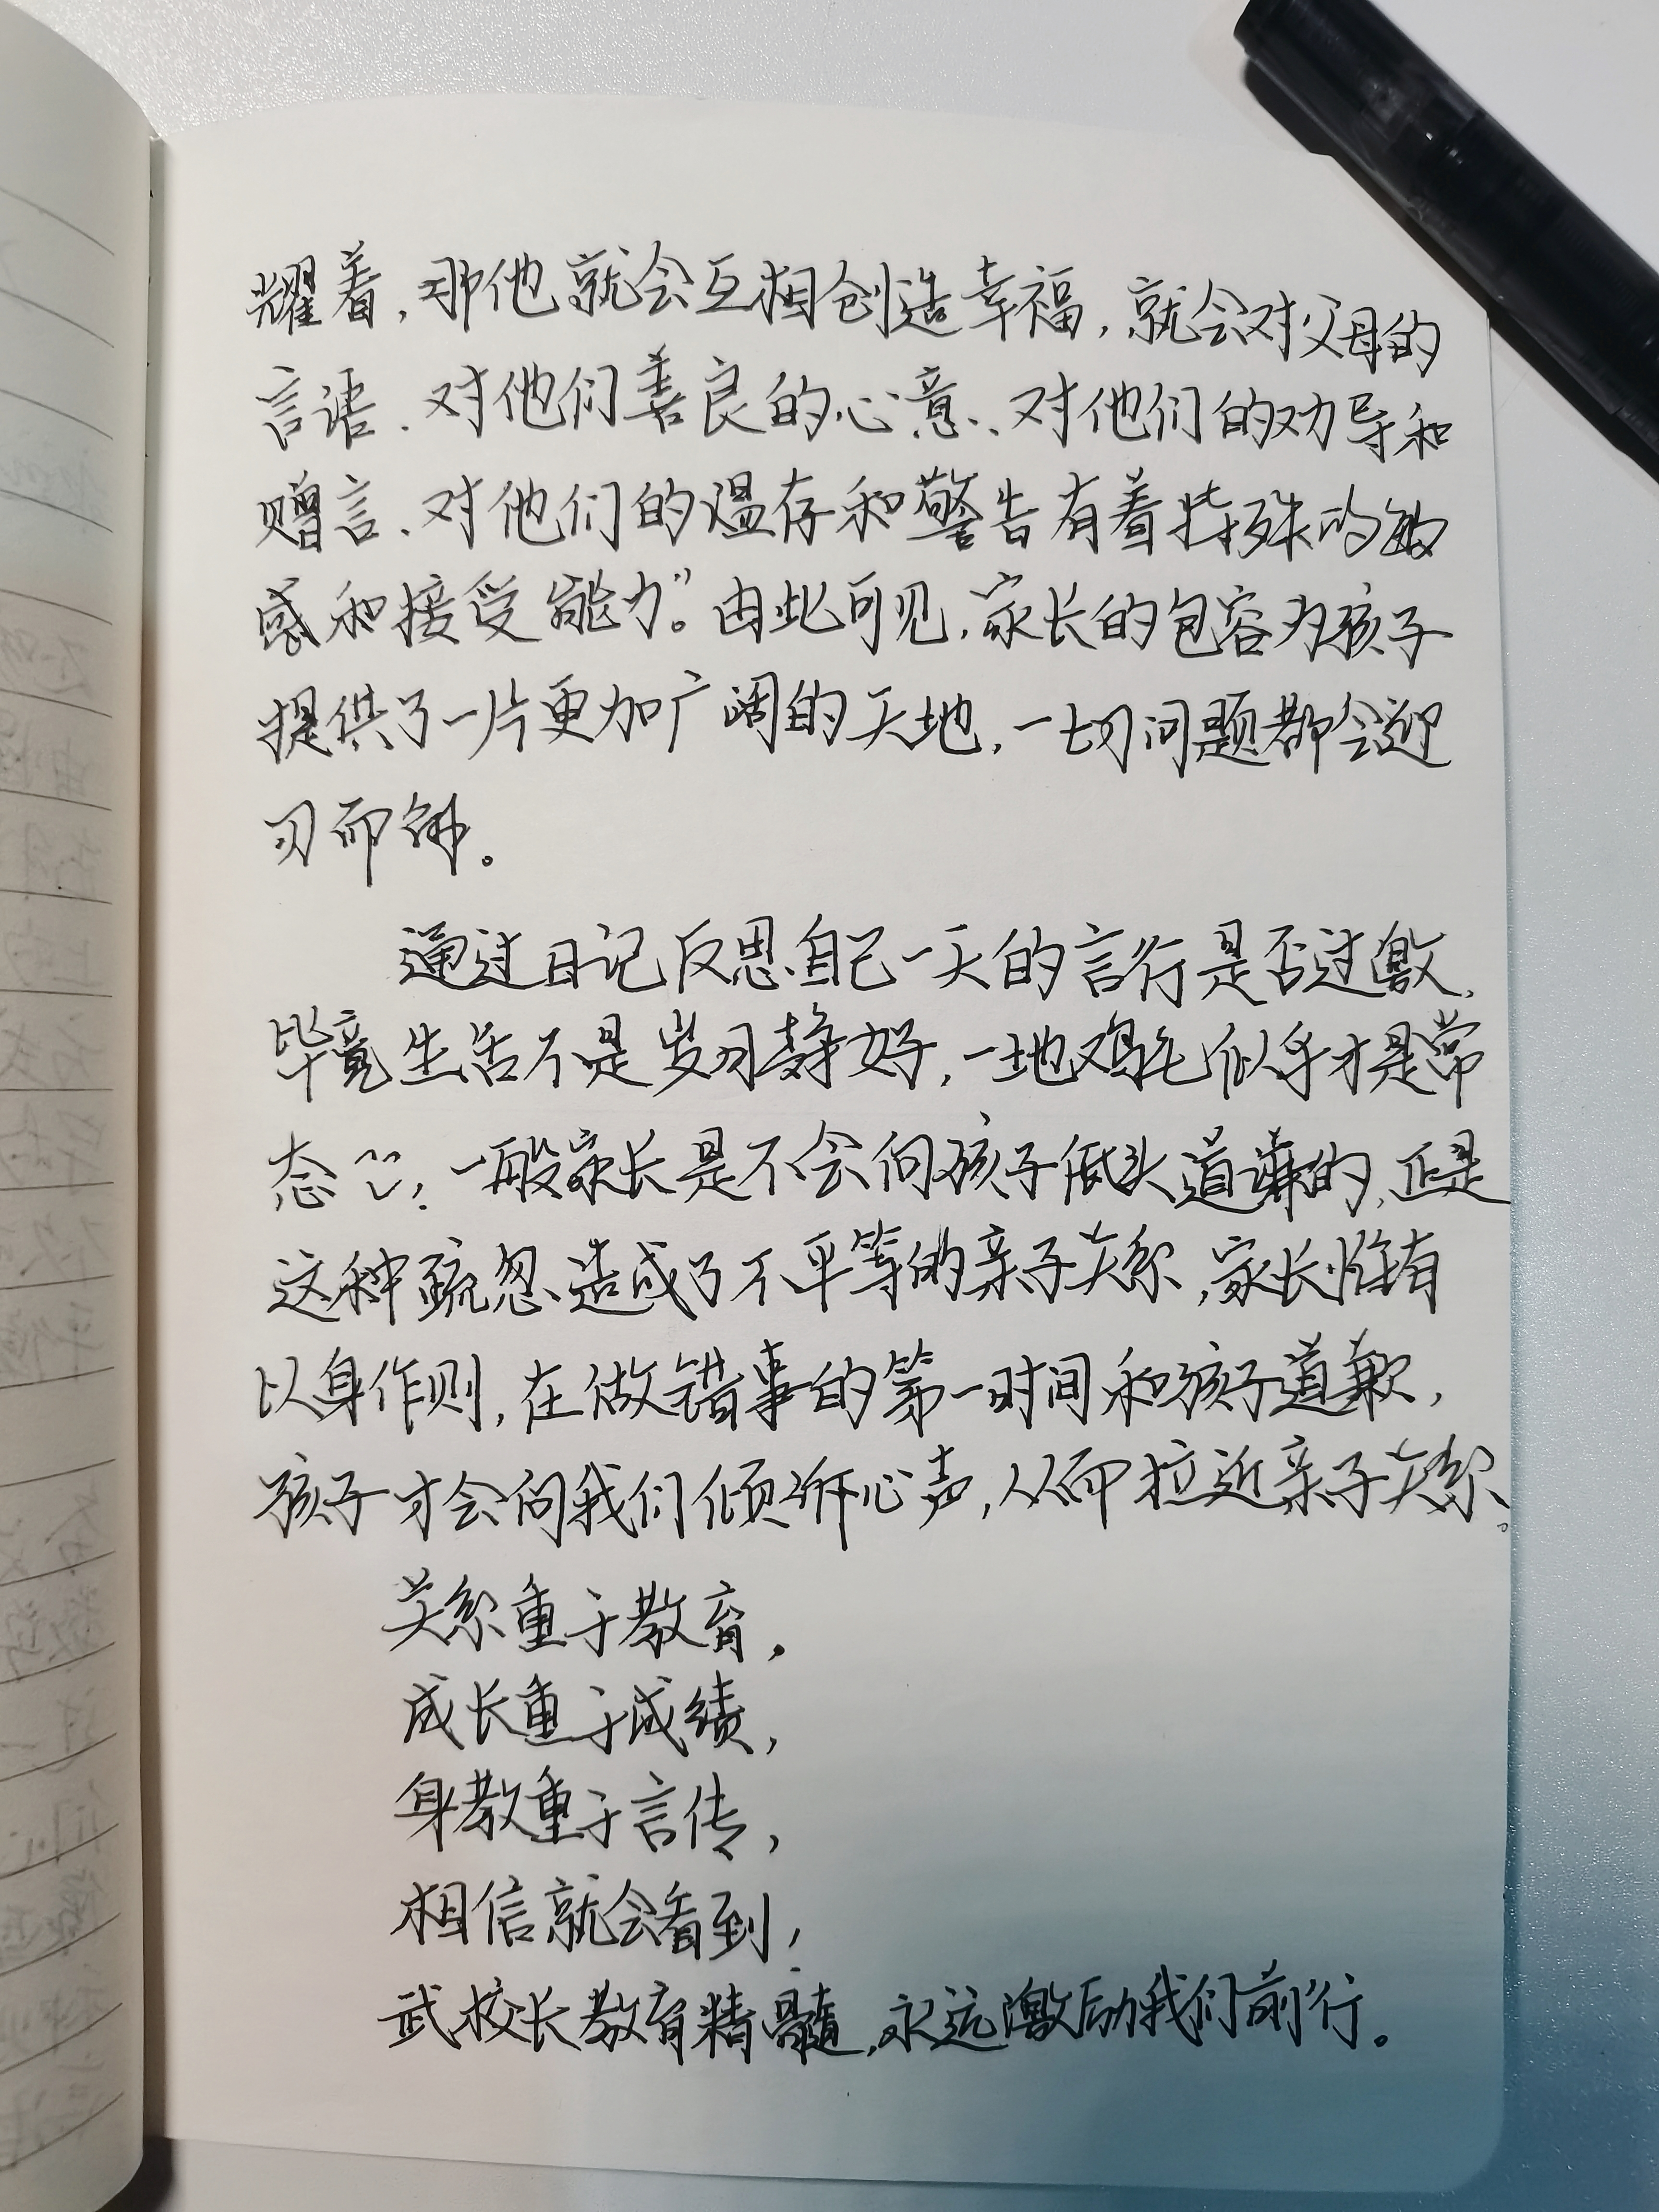 耀着，那他就会互相创造幸福，就会对父母的
言语、对他们善良的心意、对他们的劝导和
赠言、对他们的温存和警告有着特殊的敏
感和接受能力”。由此可见，家长的包容为孩子
提供了一片更加广阔的天地，一切问题都会迎
刃而解。
通过日记反思自己一天的言行是否过激，
毕竟生活不是岁月静好，一地鸡毛似乎才是常
态，一般家长是不会向孩子低头道谦的，正是
这种疏忽造成了不平等的亲子关系，家长惟有
以身作则，在做错事的第一时间和孩子道歉，
孩子才会向我们倾诉心声，从而拉近亲子关系。
关系重于教育，
成长重于成绩，
身教重于言传，
相信就会看到！
武校长教育精髓，永远激励我们前行。